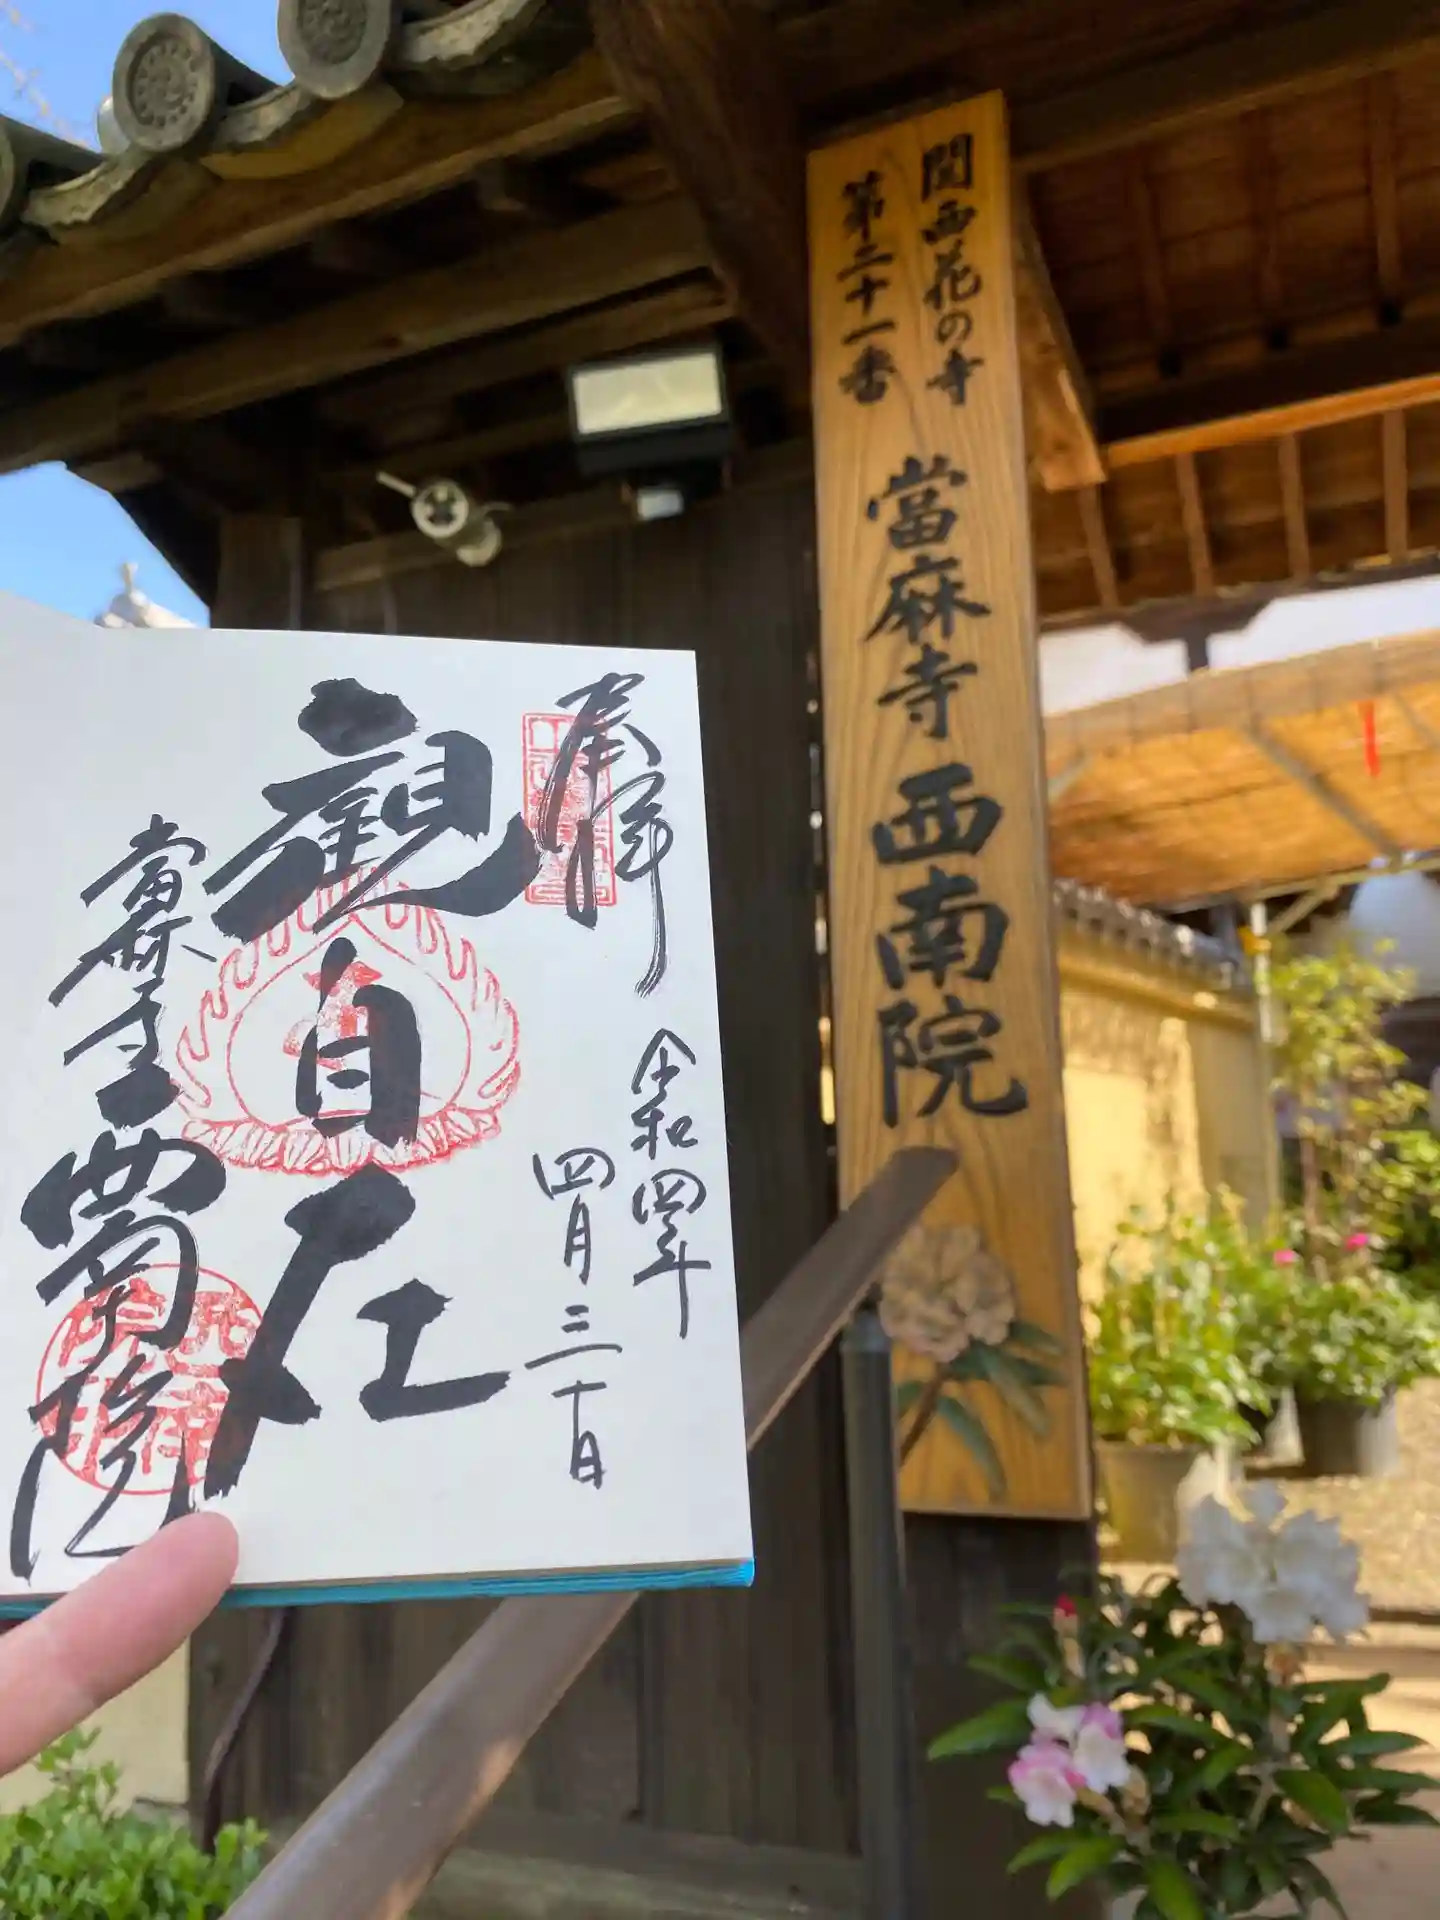 関西花の寺
第二十一番
當麻寺 西南院
奉拝
令和四年
四月三十日
観自在
當麻寺
西南院